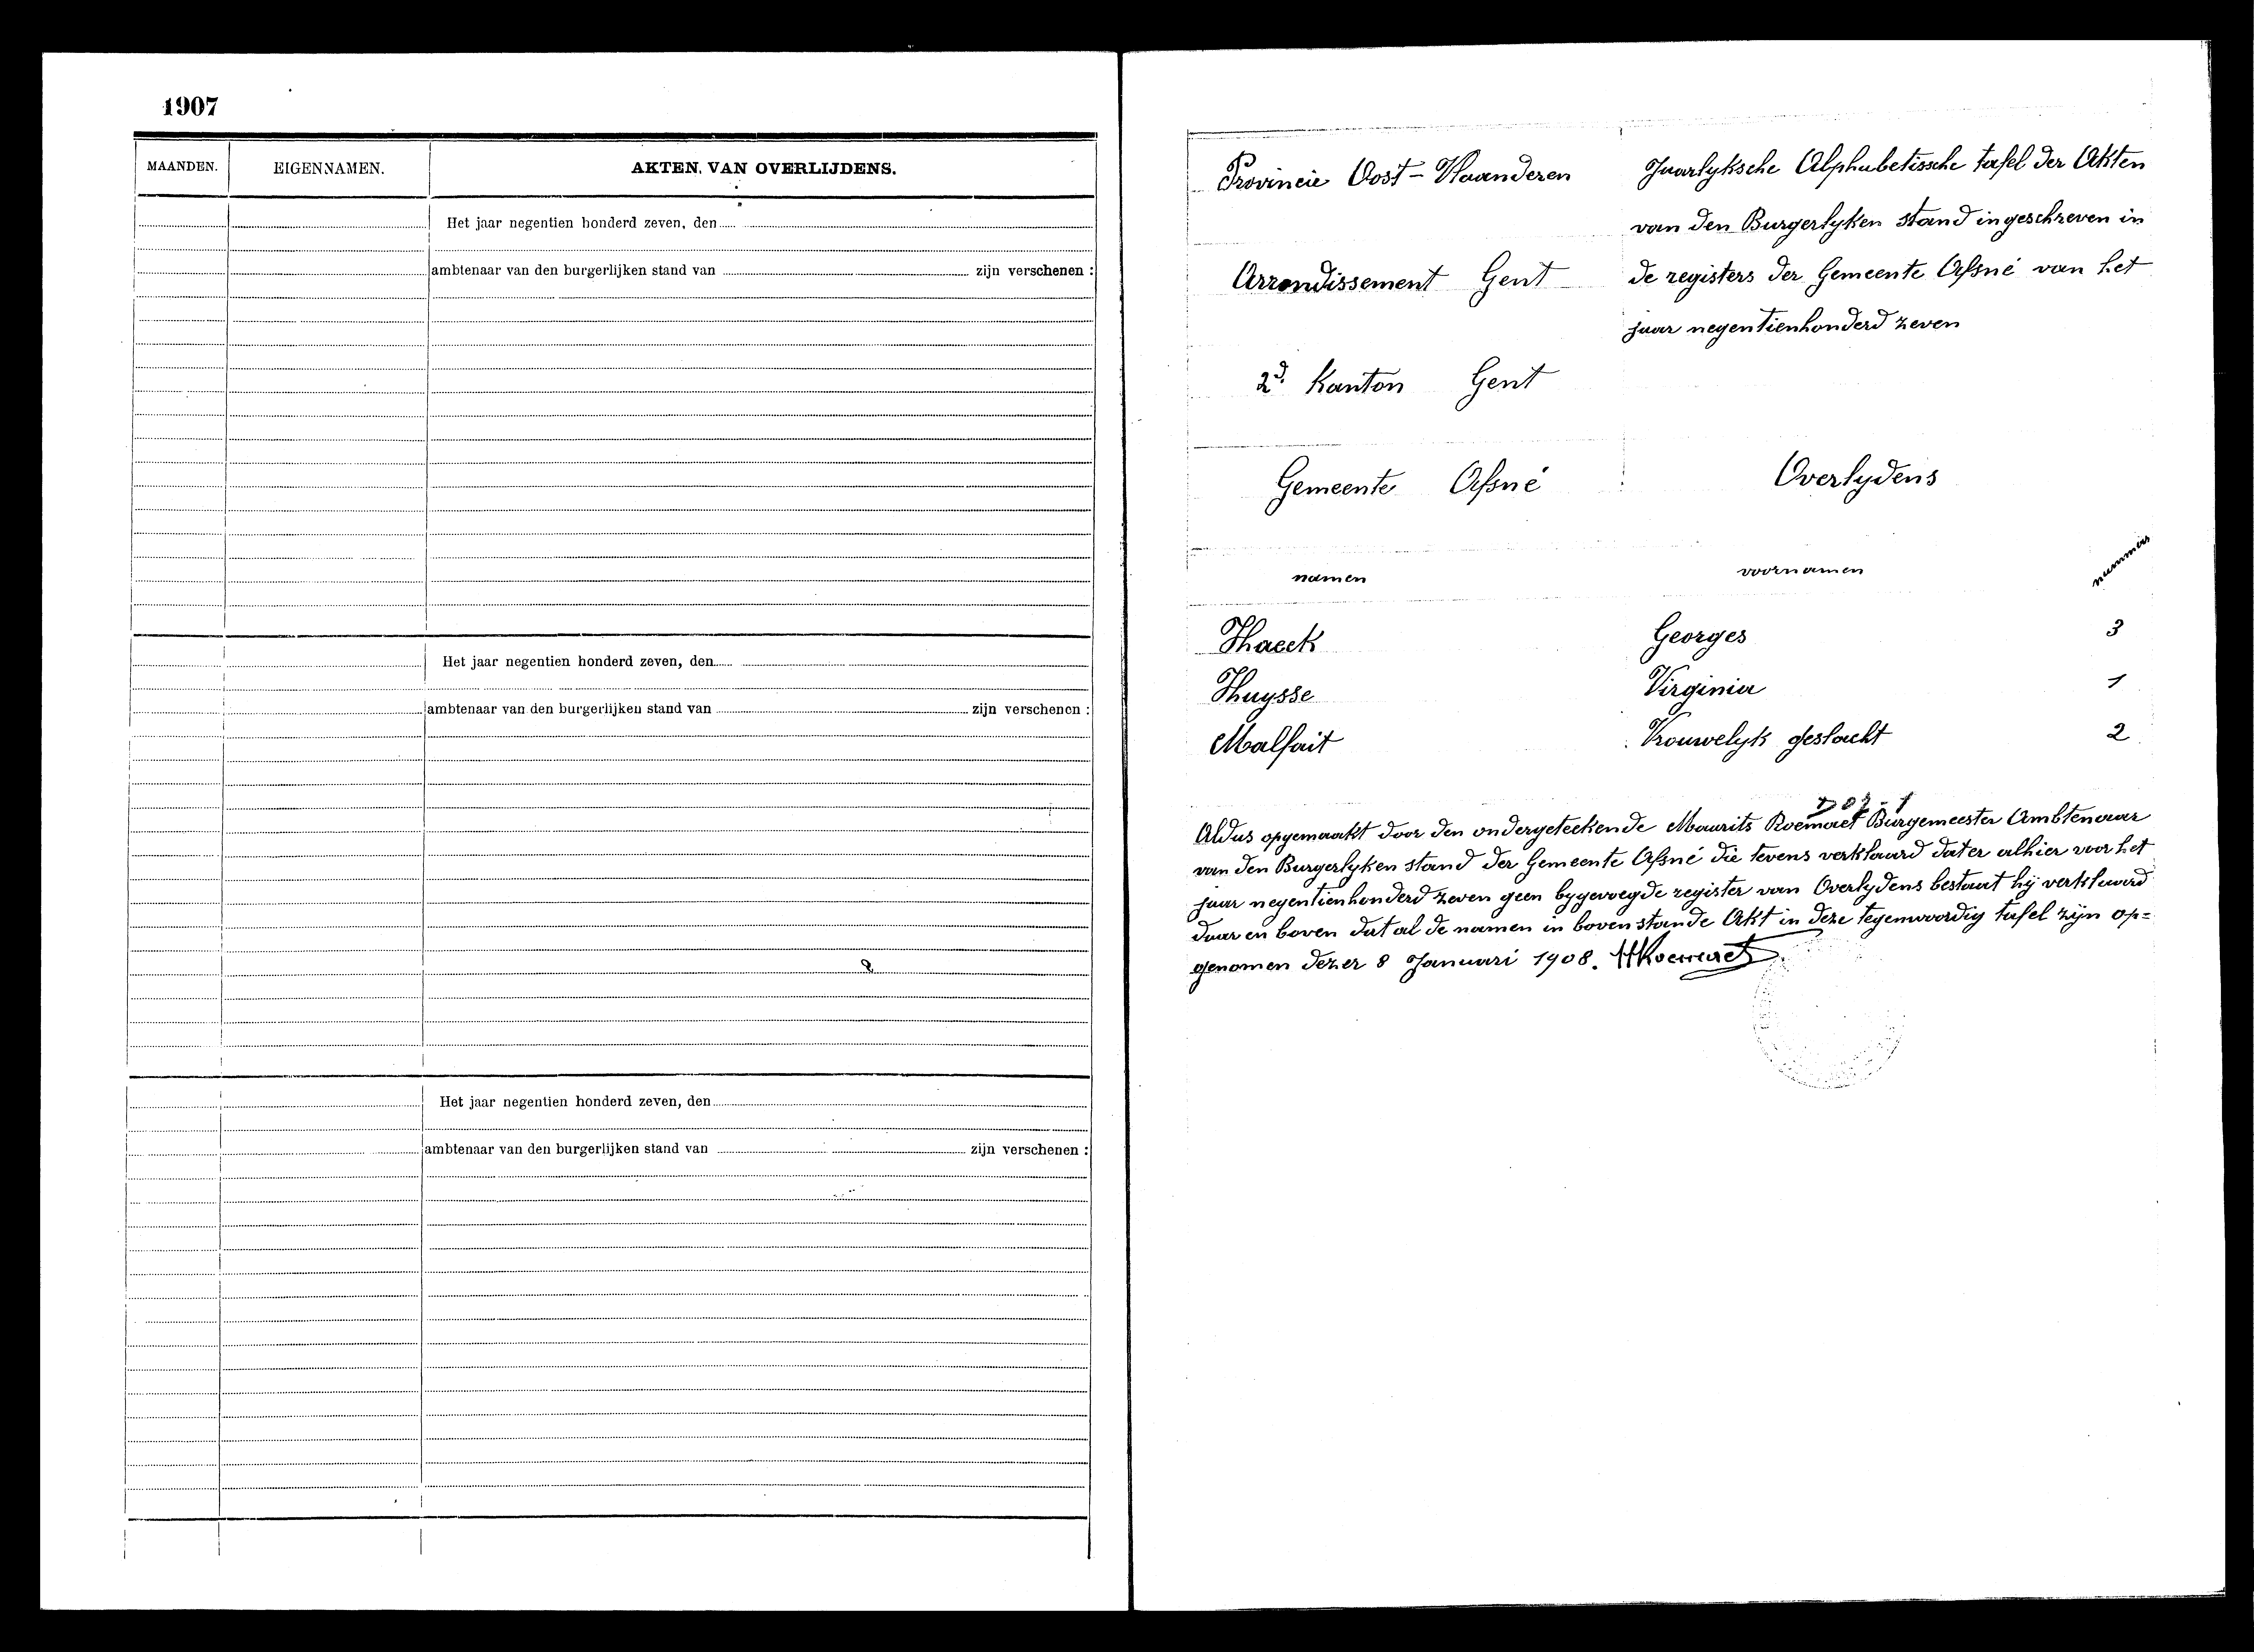 1907
MAANDEN. EIGENNAMEN. AKTEN VAN OVERLIJDENS.
Het jaar negentien honderd zeven, den
ambtenaar van den burgerlijken stand van zijn verschenen :
Het jaar negentien honderd zeven, den
ambtenaar van den burgerlijken stand van zijn verschenen :
Het jaar negentien honderd zeven, den
ambtenaar van den burgerlijken stand van zijn verschenen :
Provincie Oost-Vlaanderen
Jaarlyksche Alphabetissche tafel der Akten
van den Burgerlyken Stand ingeschreven in
Arrondissement Gent
de registers der Gemeente Afsné van het
jaar negentienhonderd zeven
2d. Kanton Gent
Gemeente Afsné
Overlydens
namen voornamen nummer
Haeck Georges 3
Huysse Virginia 1
Malfait Vrouwelyk geslacht 2
Aldus opgemaakt door den ondergeteekende Maurits Burgemeester Ambtenaar
van den Burgerlyken stand der Gemeente Afsné die tevens verklaard dat er alhier voor het
jaar negentienhonderd zeven geen bygevoegde register van Overlydens bestaat hij verklaard
daar en boven dat al de namen in bovenstande Akt in deze tegenwoordig tafel zijn op=
genomen dezer 8 Januari 1908.